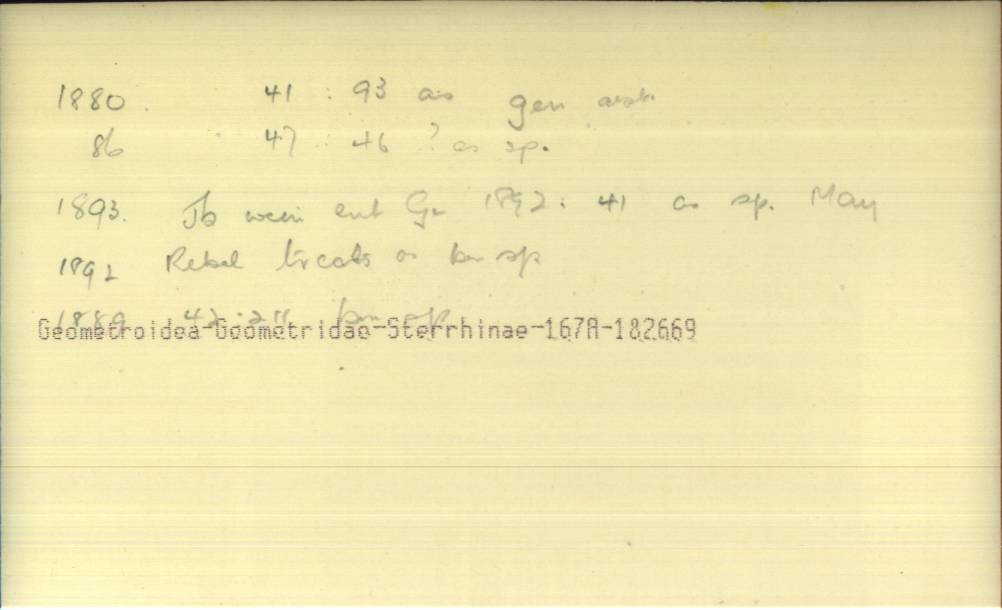 1880. 41 : 93 as gen
86 47 : 46 ? as sp.
1893. Jb wein ent Ge 1892: 41 as sp. May
1892 Rebel treats as sp
1889
Geometroidea-Geometridae-Sterrhinae-167A-182669